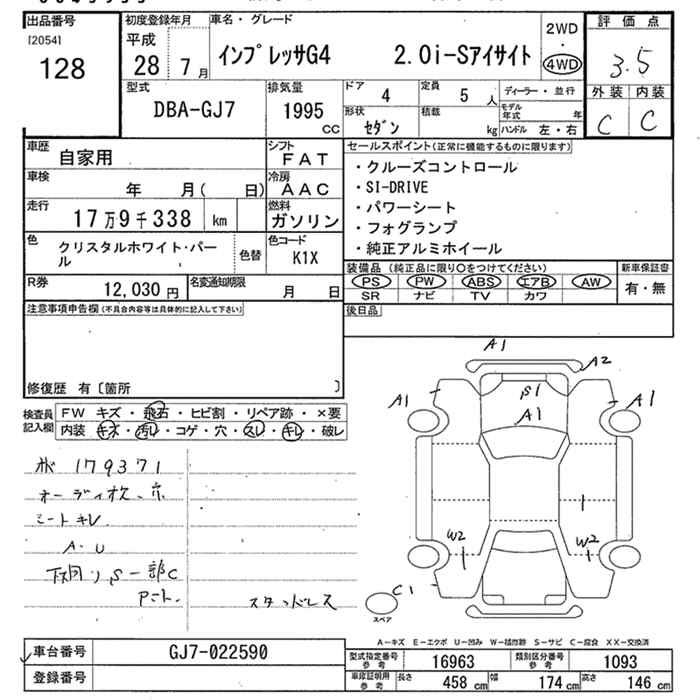 出品番号
[2054]
128
初度登録年月
平成
28 7月
車名・グレード
インプレッサG4 2.0i-Sアイサイト
2WD
・
4WD
評価点
3.5
外装 内装
C C
型式
DBA-GJ7
排気量
1995
CC
ドア
4
定員
5 人
ディーラー・並行
形状
セダン
積載
kg
モデル年式 年
ハンドル 左・右
車歴
自家用
シフト
FAT
車検
年 月( 日)
冷房
AAC
走行
17万9千338 km
燃料
ガソリン
色
クリスタルホワイト・パール
色替
色コード
K1X
R券
12,030 円
名変通知期限
月 日
セールスポイント(正常に機能するものに限ります)
・クルーズコントロール
・SI-DRIVE
・パワーシート
・フォグランプ
・純正アルミホイール
装備品 (純正品に限り○をつけてください) 新車保証書
PS PW ABS エアB AW
SR ナビ TV カワ
有・無
後日品
注意事項申告欄(不具合内容等は具体的に記入して下さい)
修復歴 有〔箇所 〕
検査員記入欄
FW キズ・飛石・ヒビ割・リペア跡・×要
内装 キズ・汚レ・コゲ・穴・スレ・キレ・破レ
179371
シートキレ
A・U
下回り S 一部C
スタッドレス
A1
A2
A1
S1
A1
A1
W2
W2
C1
スペア
A−キズ E−エクボ U−凹み W−補修跡 S−サビ C−腐食 XX−交換済
車台番号
GJ7-022590
登録番号
型式指定番号 参考
16963
類別区分番号 参考
1093
車庫証明用 参考
長さ 458 cm
幅 174 cm
高さ 146 cm